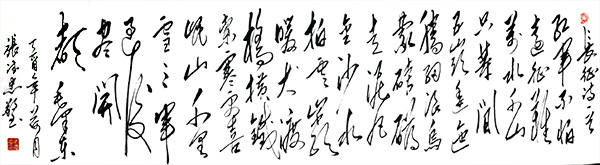 长征诗一首
红军不怕
远征难
万水千山
只等闲
五岭逶迤
腾细浪乌
蒙磅礴
走泥丸
金沙水
拍云崖
暖大渡
桥横铁
索寒更喜
岷山千里
雪三军
过后
尽开
颜 毛泽东
丁酉年